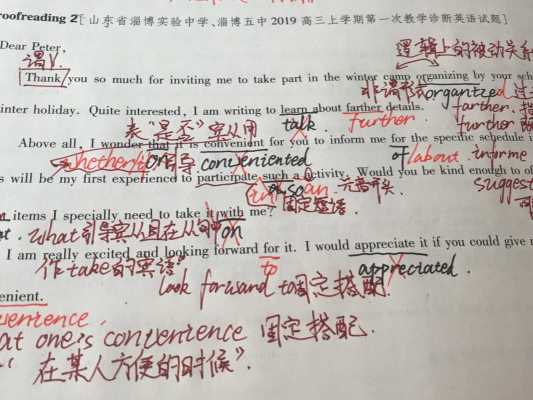 roofreading 2[山东省淄博实验中学、淄博五中 2019 高三上学期第一次教学诊断英语试题]
Dear Peter,
谓V.
逻辑上的被动关系
Thank you so much for inviting me to take part in the winter camp organizing by your sch
非谓形式 organized
inter holiday. Quite interested, I am writing to learn about farther details.
farther.
表"是否"宾从用
talk
further
further
Above all, I wonder that it is convenient for you to inform me for the specific schedule i
whether
引导
conveniented
of/about. inform me
s will be my first experience to participate such a activity. Would you be kind enough to of
in
an
元音开头
suggest
items I specially need to take it with me?
固定短语.
what引导宾从且在从句中
on
I am really excited and looking forward for it. I would appreciate it if you could give
作take的宾语.
to
appreciated.
look forward to固定搭配.
enient.
venience.
at one's convenience 固定搭配.
"在某人方便的时候".